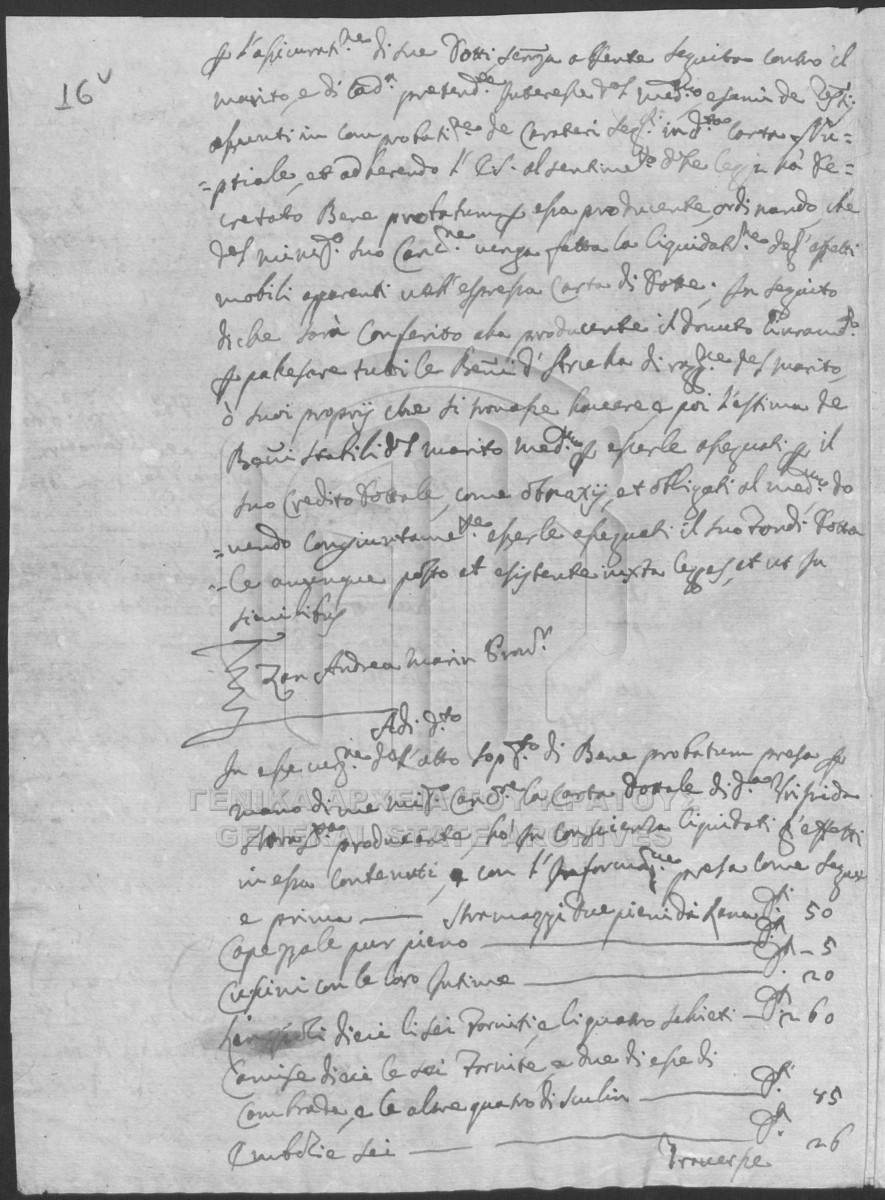 16v
p l'asicurati.ne di sue Dotti senza assente seguita contro il
marito, e di cad.n pretend.te Interesse del med.mo esami de Testi
asonti in comprobati.ne de Carateri seg.ti in d.ta Carta Nu=
=ptiale, et adherendo l' Ill. al sentime.to d'he leggi hà De=
cretato Bene probatum p essa producente, ordinando, che
del minis.o suo Canc.re venga fatta la liquidat.ne degl'effetti
mobili apparenti nell'espressa Carta di Dotte; In seguito
di che sarà Conferito alla producente il dovuto
p palesare tutti le Beni d' di rag.ne del marito,
ò suoi proprij che si trovasse havere, e poi l'estima de
Beni stabili del marito med.mo p esserle asequati p il
suo Credito Dottale, come obnoxij, et obligati al med.mo do
=vendo congiuntame.te esserle asequati il suo Fondi Dotta
=le ovunque posto et esistente iuxta leges, et ut in
similibus
Zan Andrea Marin Prov.r
Adi d.to
In esecuz.ne dell'atto sop.to di Bene probatum presa p
mano di me mi.o Canc.re la Carta Dottale di d.a
ΓΕΝΙΚΑ ΑΡΧΕΙΑ ΤΟΥ ΚΡΑΤΟΥΣ
producente, hò in conscienza liquidati l'effetti
GENERAL STATE ARCHIVES
in essa contenuti, e con l'Informa.ne presa come segue
e prima — Stramazzi due pieni di Lana 50
Capezzale pur pieno — 5
Cusini con le loro Intime — 20
Linzioli dieci li sei Forniti, e li quatro schieti — 260
Camise dieci le sei Fornite, e due di esse di
Cambrada, e le altre quatro di — 85
sei — 26
Traverse